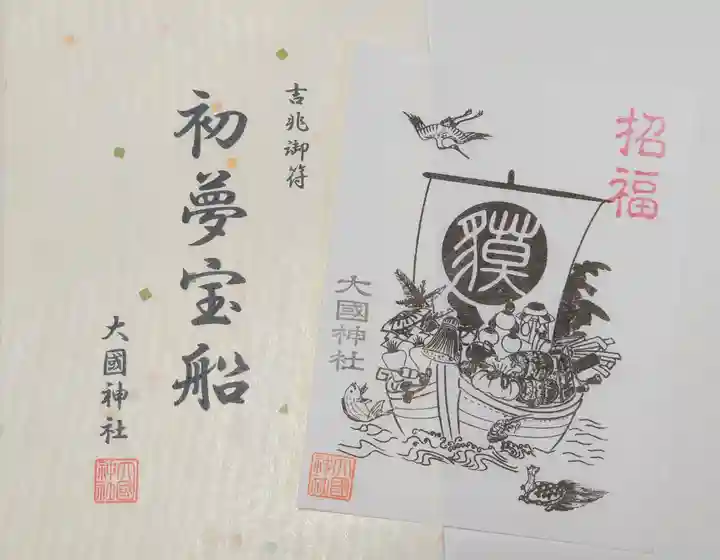 吉兆御符
初夢宝船
大國神社
大国神社
招福
獏
大國神社
大国神社